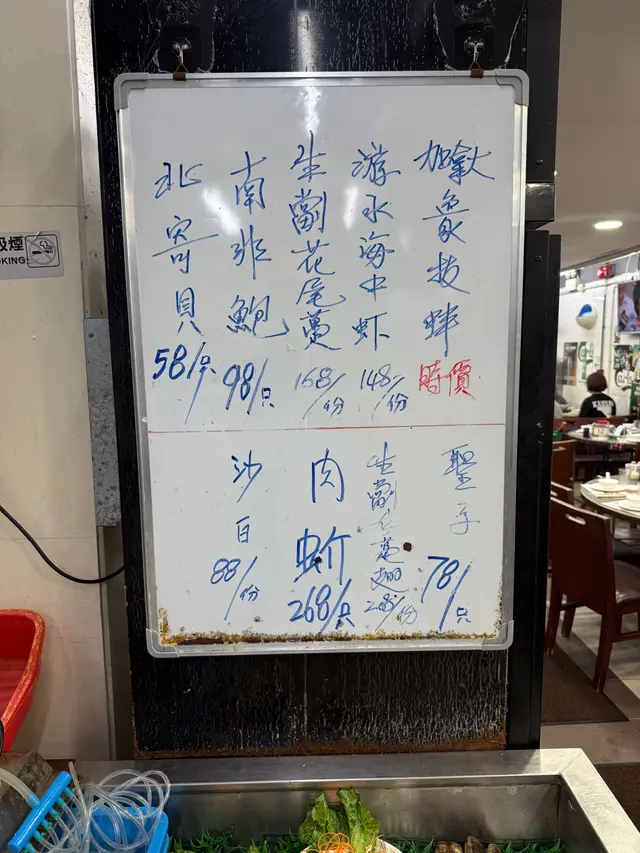 加拿大象拔蚌
時價
游水海中虾
148/份
生劏花尾躉
168/份
南非鮑
98/只
北寄貝
58/只
聖子
78/只
生劏
肉蚧
268/只
沙白
88/份
吸煙
OKING